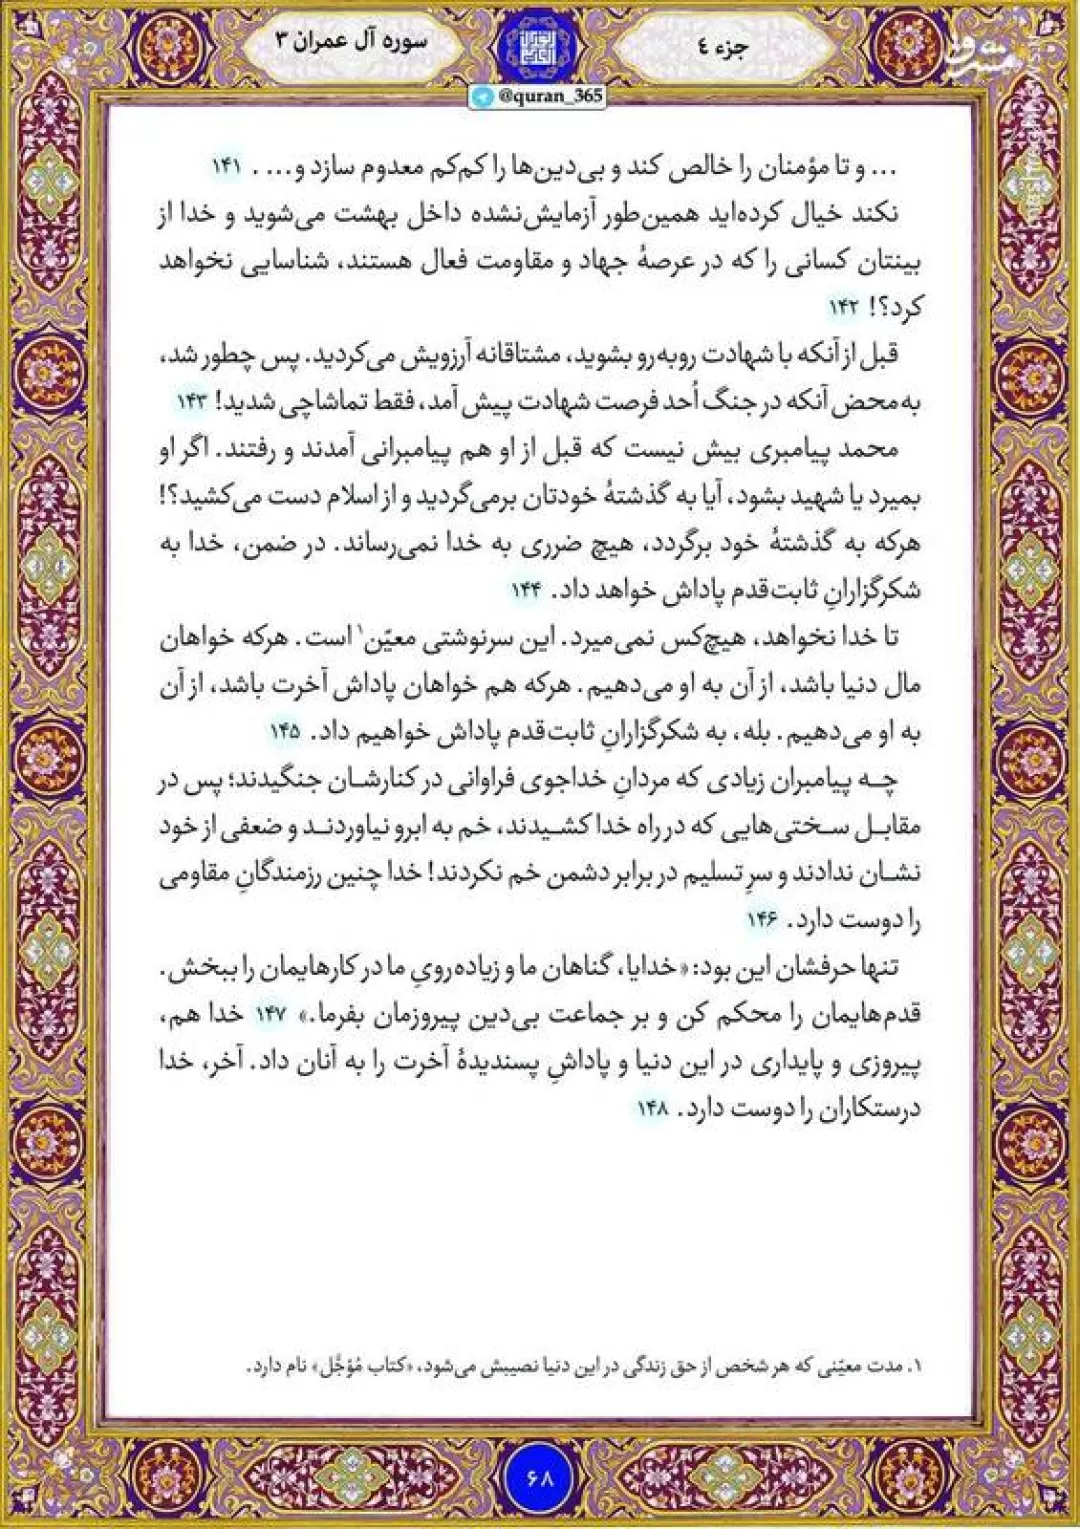 جزء ۴
سوره آل عمران ۳
مشرق
@quran_365
... و تا مؤمنان را خالص کند و بی‌دین‌ها را کم‌کم معدوم سازد و... . ۱۴۱
نکند خیال کرده‌اید همین‌طور آزمایش‌نشده داخل بهشت می‌شوید و خدا از
بینتان کسانی را که در عرصهٔ جهاد و مقاومت فعال هستند، شناسایی نخواهد
کرد؟! ۱۴۲
قبل از آنکه با شهادت روبه‌رو بشوید، مشتاقانه آرزویش می‌کردید. پس چطور شد،
به‌محض آنکه در جنگ اُحد فرصت شهادت پیش آمد، فقط تماشاچی شدید! ۱۴۳
محمد پیامبری بیش نیست که قبل از او هم پیامبرانی آمدند و رفتند. اگر او
بمیرد یا شهید بشود، آیا به گذشتهٔ خودتان برمی‌گردید و از اسلام دست می‌کشید؟!
هرکه به گذشتهٔ خود برگردد، هیچ ضرری به خدا نمی‌رساند. در ضمن، خدا به
شکرگزارانِ ثابت‌قدم پاداش خواهد داد. ۱۴۴
تا خدا نخواهد، هیچ‌کس نمی‌میرد. این سرنوشتی معیّن۱ است. هرکه خواهان
مال دنیا باشد، از آن به او می‌دهیم. هرکه هم خواهان پاداش آخرت باشد، از آن
به او می‌دهیم. بله، به شکرگزارانِ ثابت‌قدم پاداش خواهیم داد. ۱۴۵
چه پیامبران زیادی که مردانِ خداجوی فراوانی در کنارشان جنگیدند؛ پس در
مقابل سختی‌هایی که در راه خدا کشیدند، خم به ابرو نیاوردند و ضعفی از خود
نشان ندادند و سرِ تسلیم در برابر دشمن خم نکردند! خدا چنین رزمندگانِ مقاومی
را دوست دارد. ۱۴۶
تنها حرفشان این بود: «خدایا، گناهان ما و زیاده‌رویِ ما در کارهایمان را ببخش.
قدم‌هایمان را محکم کن و بر جماعت بی‌دین پیروزمان بفرما.» ۱۴۷ خدا هم،
پیروزی و پایداری در این دنیا و پاداشِ پسندیدهٔ آخرت را به آنان داد. آخر، خدا
درستکاران را دوست دارد. ۱۴۸
۱. مدت معیّنی که هر شخص از حق زندگی در این دنیا نصیبش می‌شود، «کتاب مُؤجَّل» نام دارد.
۶۸